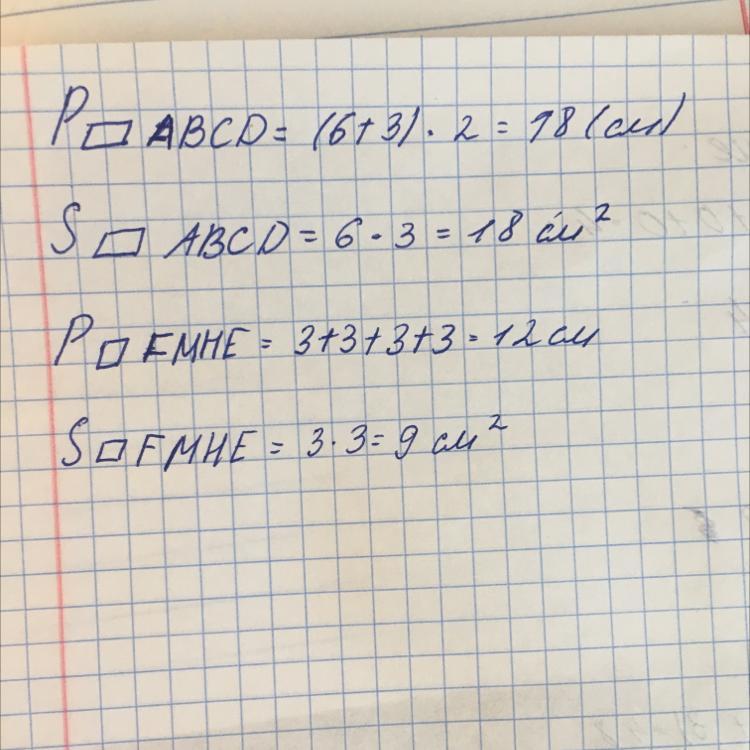 P▭ ABCD = (6+3) · 2 = 18 (см)
S▭ ABCD = 6 · 3 = 18 см²
P□ FMHE = 3+3+3+3 = 12 см
S□ FMHE = 3 · 3 = 9 см²